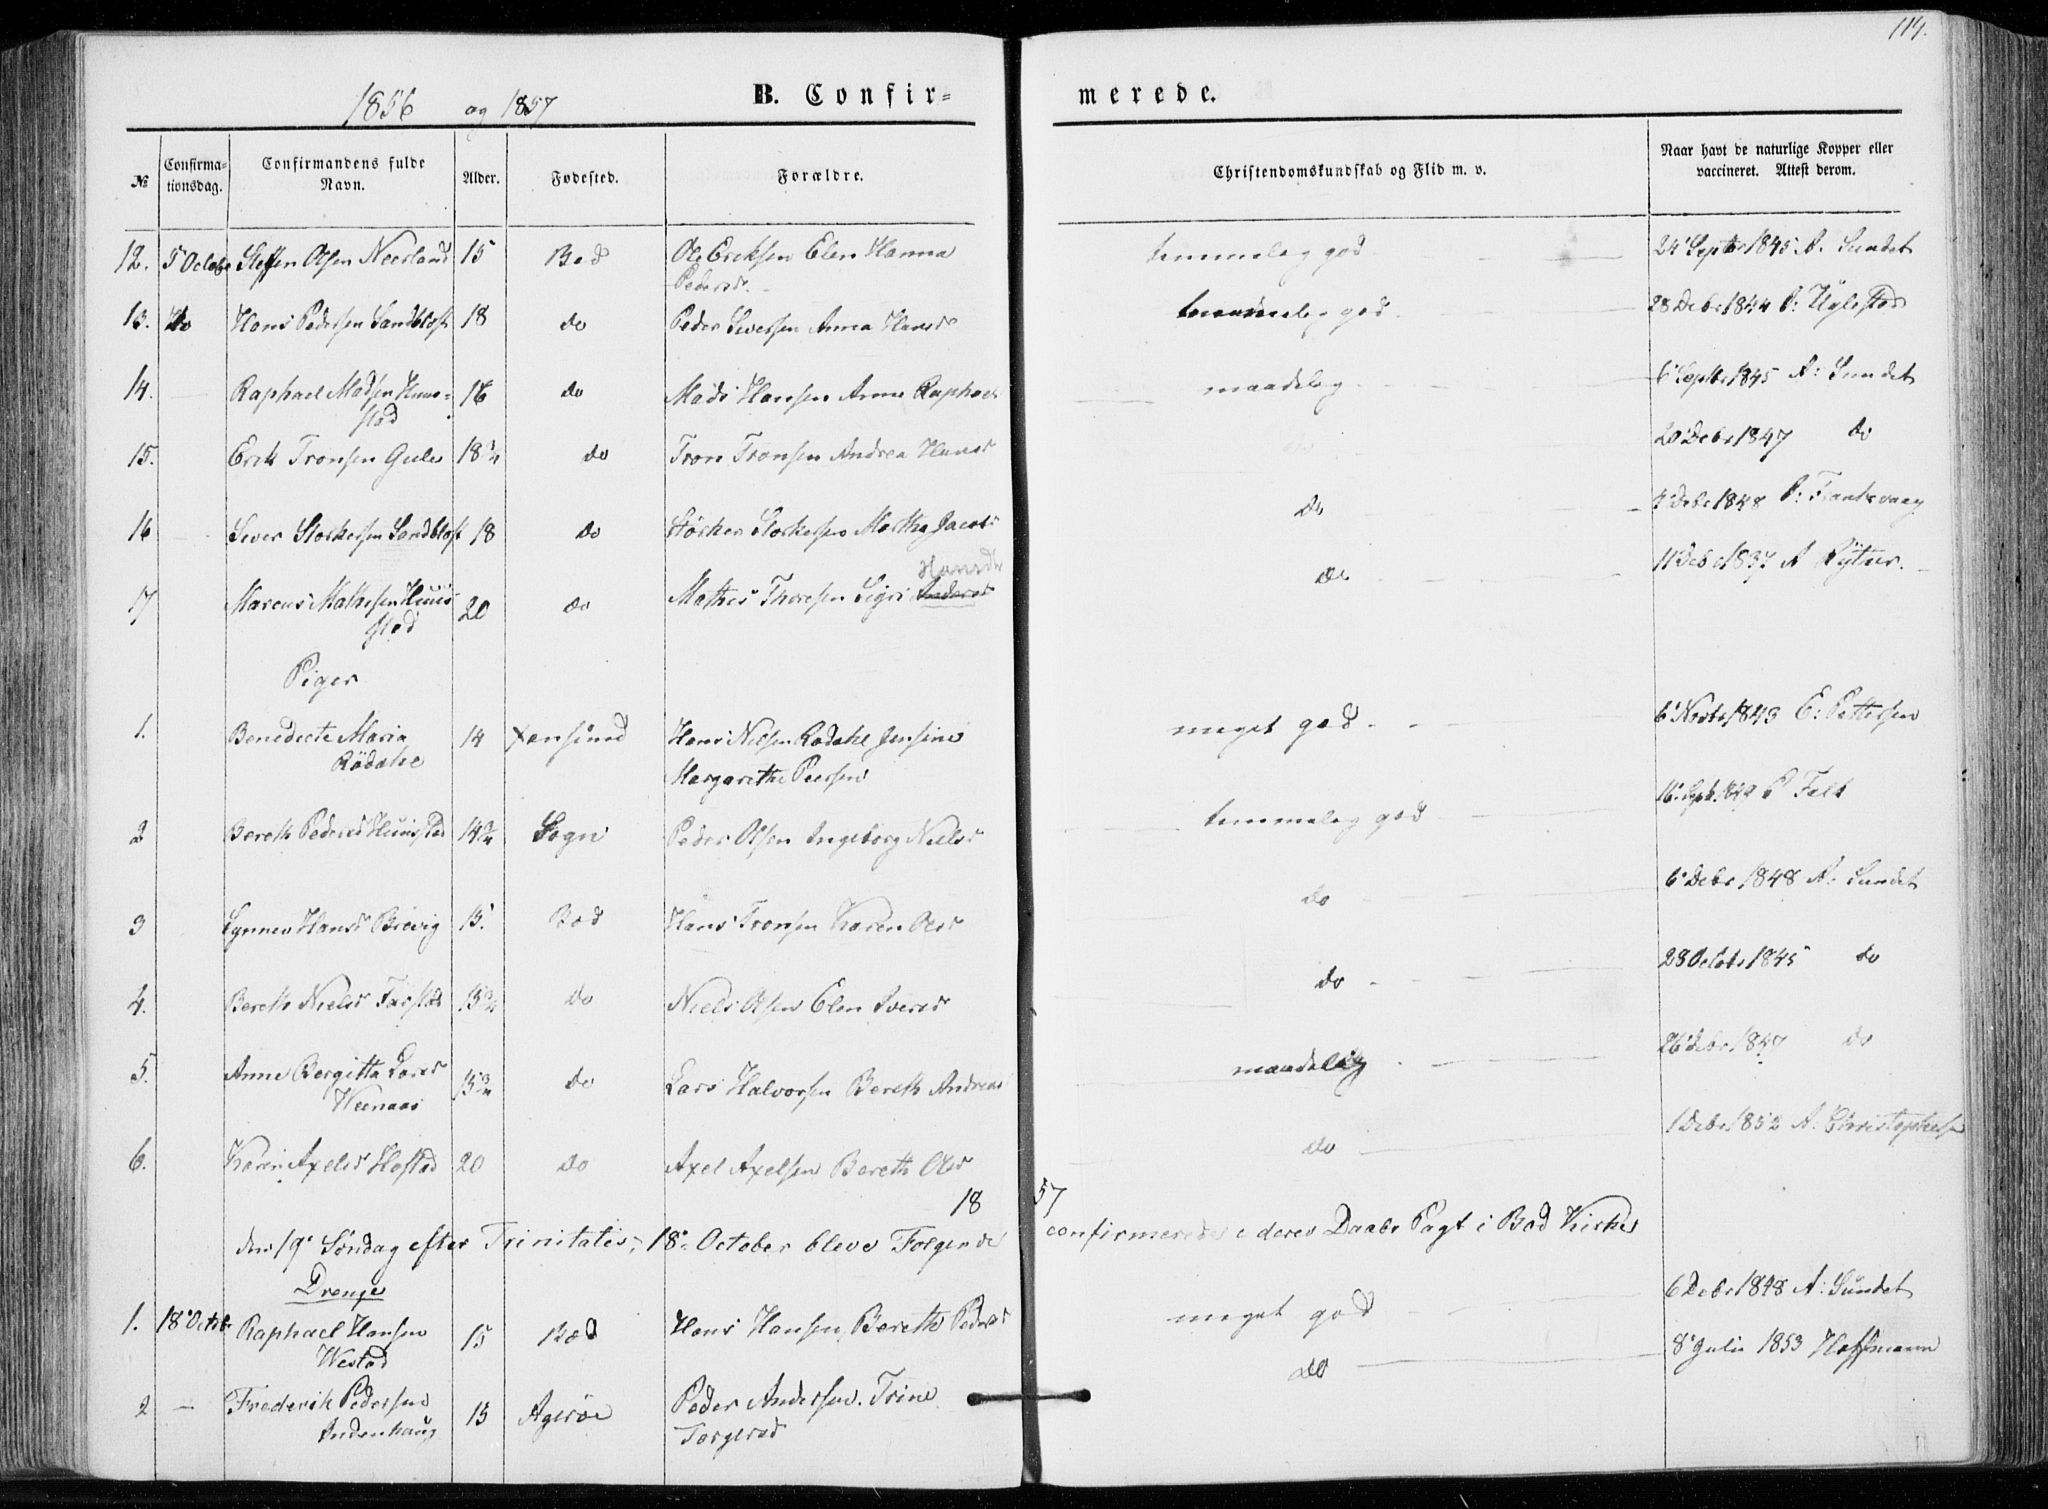 114.
1856 og 1857
B. Confirmerede.
№ Confirmationsdag. Confirmandens fulde Navn. Alder. Fødested. Forældre. Christendomskundskab og Flid m. v. Naar havt de naturlige Kopper eller vaccineret. Attest derom.
12. 5 Octobr Steffen Olsen Neerland 15 Bod Ole Eriksen Elen Hanna Pedersd. temmelig god 24 Septbr 1845 A. Sundet
13. Do Hans Pedersen Sandblost 18 do Peder Siversen Anna Hansd temmelig god 28 Debr 1844 P:
14. Raphael Madsen Huustad 16 do Mads Hansen Anne Raphaels maadelig 6 Septbr 1845 A: Sundet
15. Erik Tronsen Gule 18 3/4 do Tron Tronsen Andrea Hansd do 20 Debr 1847 do
16 Siver Storkersen Sandblost 18 do Störker Storkersen Martha Jacobs do Debr 1848 P:
17 Marcus Mathesen Huustad 20 do Mathis Thoresen Sigri Andersd Hansdr do 11 Debr 1837 A
Piger
1. Benedicte Maria Rödahl 14 Xansund Hans Nilsen Rødahl Jensine Margarethe Peersen meget god 6 Novbr 1843 E: Pettersen
2 Bereth Pedersd Huustad 14 3/4 Sogn Peder Olsen Ingeborg Nielsd temmelig god 16. Septb. P Falk
3 Synnev Hansd Brevig 15. Bod Hans Tronsen Karen Olsd do 6 Debr 1848 A: Sundet
4. Bereth Nielsd Farstad 15 3/4 do Niels Olsen Elen Iversd do 28 Octobr 1845 do
5. Anne Bergitta Larsd Weenaas 15 3/4 do Lars Halvorsen Bereth Andreas maadelig 26 Debr 1847 do
6. Karen Axelsd Hostad 20 do Axel Axelsen Bereth Olsd do 1 Debr 1852 A. Christophersen
1857
den 19de Söndag efter Trinitatis, 18de October bleve Følgende confirmerede i deres Daabs Pagt i Bod Kirke
Drenge
1. 18 Octobr Raphael Hansen Westad 15 Bod Hans Hansen, Bereth Pedersd meget god 6 Debr 1848 A: Sundet
2 — Frederik Pedersen Indenhaug 15 Agerøe Peder Andersen. Trine Torgersd do 8 Julii 1853 Hoffmann